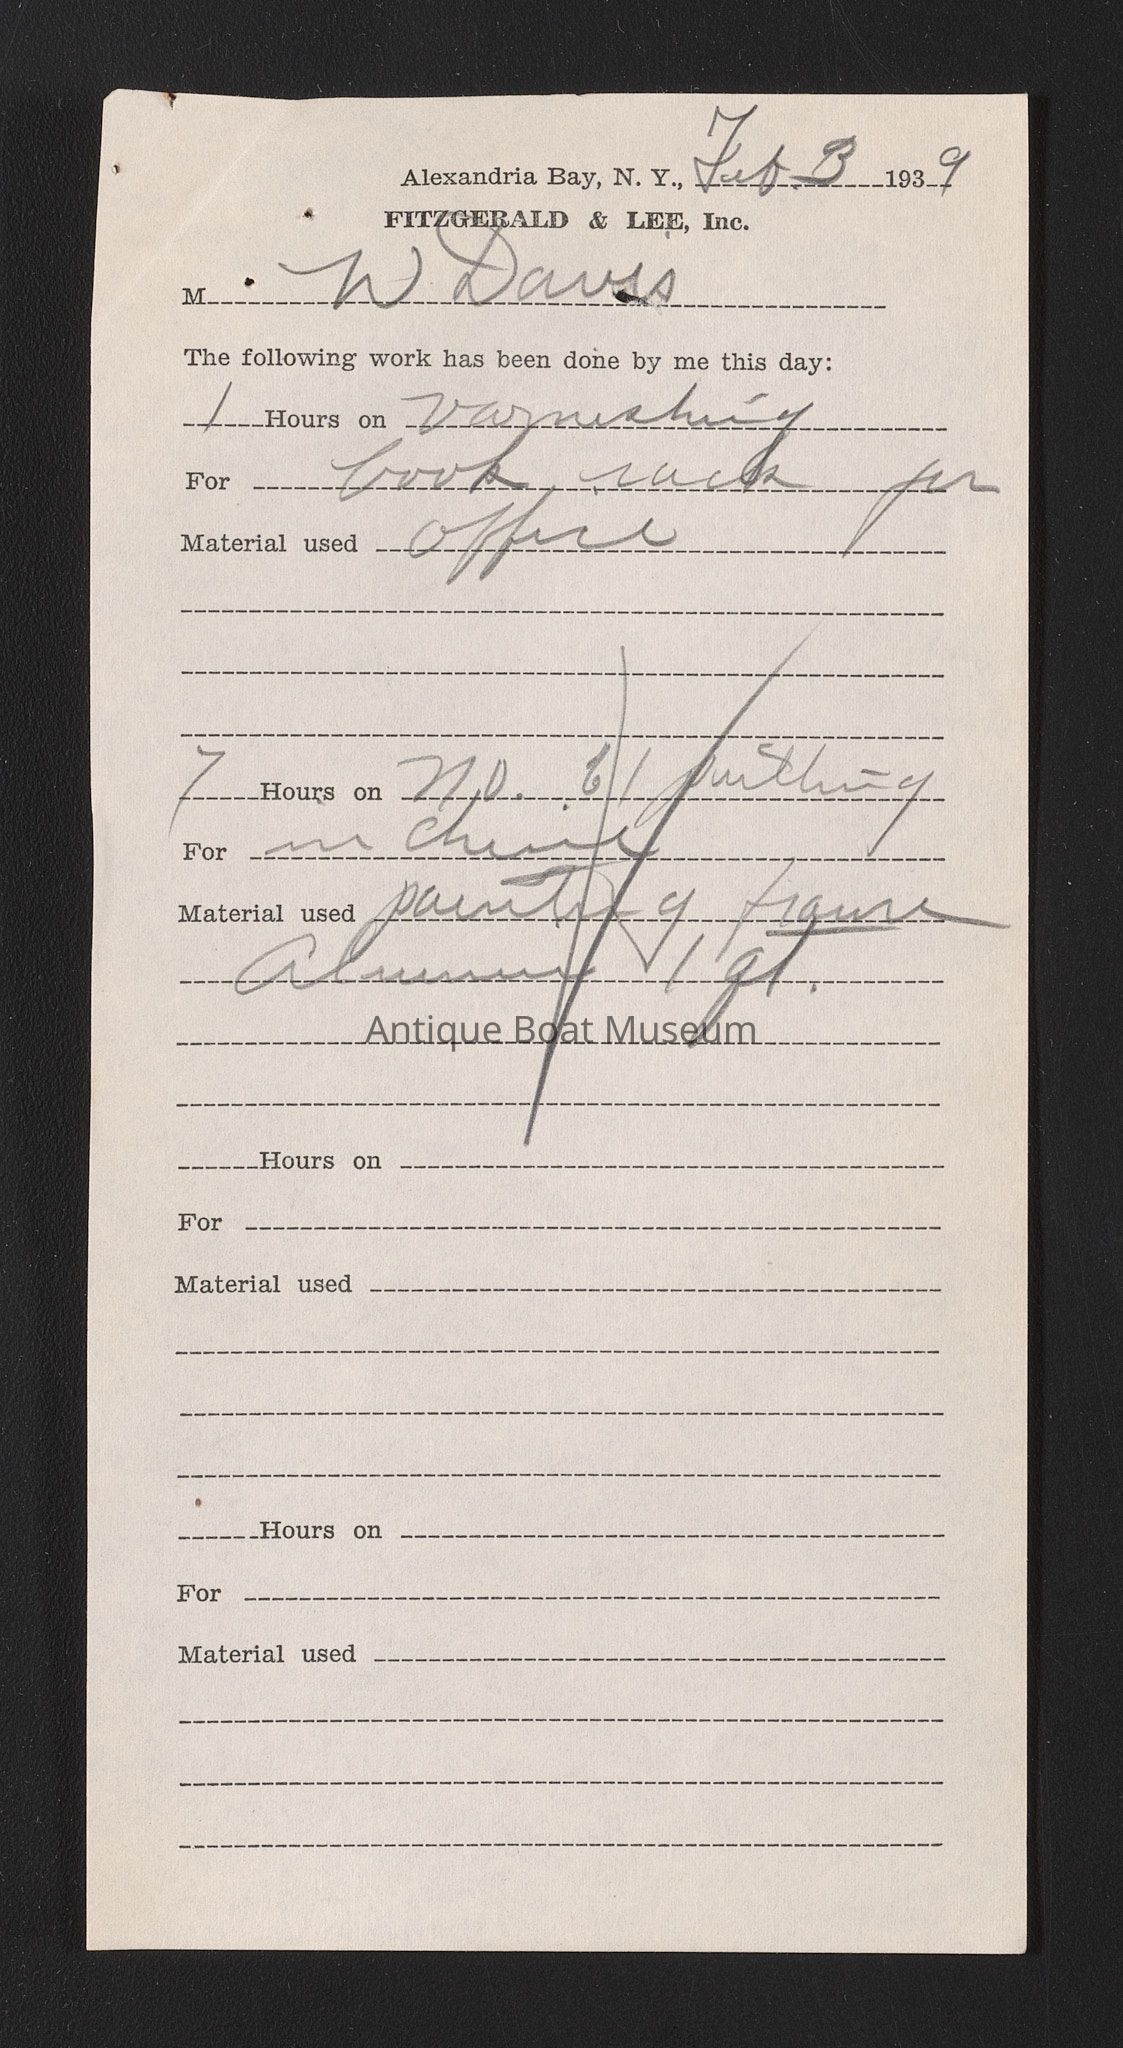 Alexandria Bay, N. Y., Feb. 3 1939
FITZGERALD & LEE, Inc.
M W Davis
The following work has been done by me this day:
1 Hours on varnishing
For book rack for
Material used office
7 Hours on No. 61
For in
Material used painting frame
1 qt.
Antique Boat Museum
Hours on
For
Material used
Hours on
For
Material used